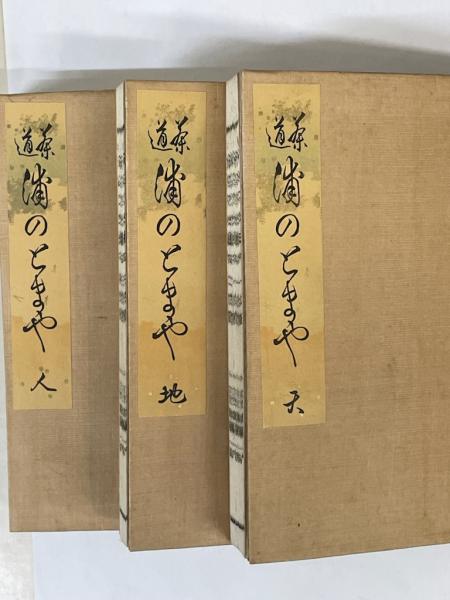 茶道 浦のとまや 天
茶道 浦のとまや 地
茶道 浦のとまや 人